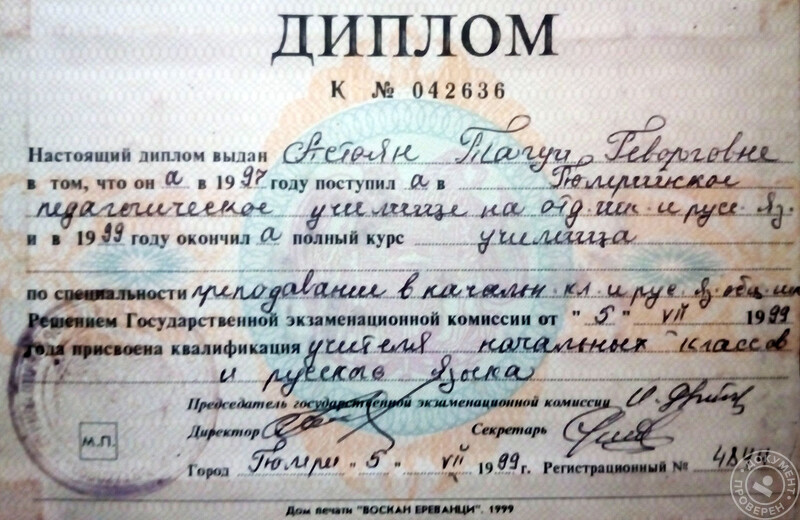 ДИПЛОМ
К № 042636
Настоящий диплом выдан Астоян Тагуи Геворговне
в том, что он а в 1997 году поступил а в Гюмрийское
педагогическое училище на отд. нач. и русс. яз.
и в 1999 году окончил а полный курс училища
по специальности преподавание в начальн. кл. и рус. яз. общ.
Решением Государственной экзаменационной комиссии от "5" VII 1999
года присвоена квалификация учителя начальных классов
и русского языка
Председатель государственной экзаменационной комиссии
Директор Секретарь
м.п.
Город Гюмри "5" VII 1999 г. Регистрационный №
Дом печати "ВОСКАН ЕРЕВАНЦИ". 1999
ДОКУМЕНТ ПРОВЕРЕН